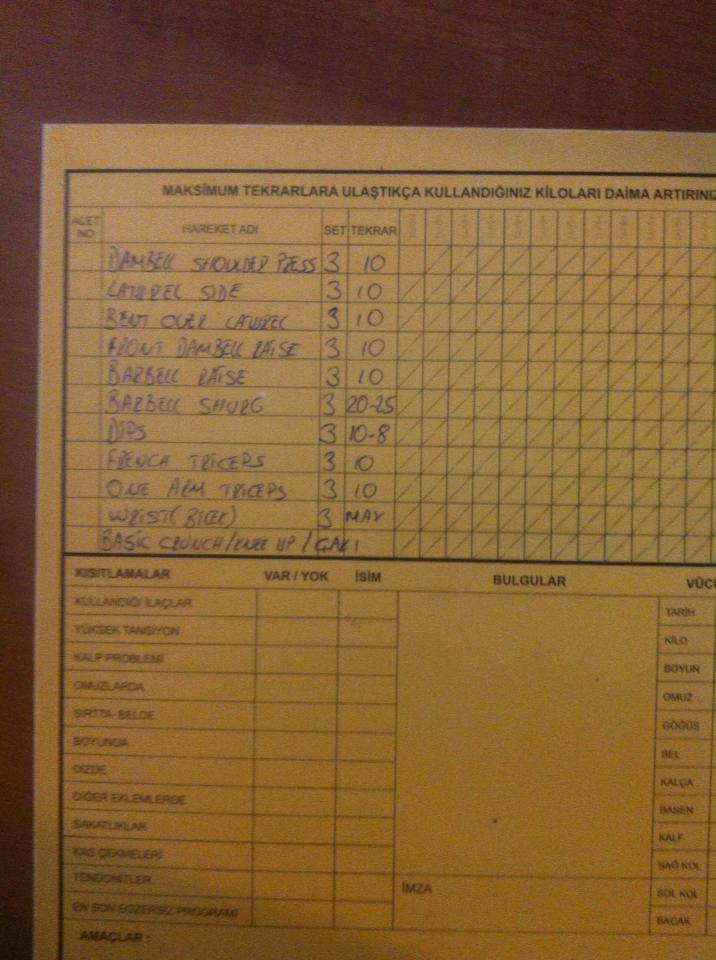 MAKSİMUM TEKRARLARA ULAŞTIKÇA KULLANDIĞINIZ KİLOLARI DAİMA ARTIRINIZ
ALET NO HAREKET ADI SET TEKRAR
DAMBELL SHOULDER PRESS 3 10
LATUREL SIDE 3 10
BENT OVER LATUREL 3 10
FRONT DAMBELL RAISE 3 10
BARBELL RAISE 3 10
BARBELL SHURG 3 20-25
DIPS 3 10-8
FRENCH TRICEPS 3 10
ONE ARM TRICEPS 3 10
WRIST (BILEK) 3 MAX
BASIC CRUNCH/KNEE UP/ÇAKI
KISITLAMALAR VAR / YOK İSİM BULGULAR VÜCU
KULLANDIĞI İLAÇLAR TARİH
YÜKSEK TANSİYON KİLO
KALP PROBLEMİ BOYUN
OMUZLARDA OMUZ
SIRTTA- BELDE GÖĞÜS
BOYUNDA BEL
DİZDE KALÇA
DİĞER EKLEMLERDE BASEN
SAKATLIKLAR KALF
KAS ÇEKMELERİ SAĞ KOL
TENDONİTLER İMZA SOL KOL
EN SON EGZERSİZ PROGRAMI BACAK
AMAÇLAR :